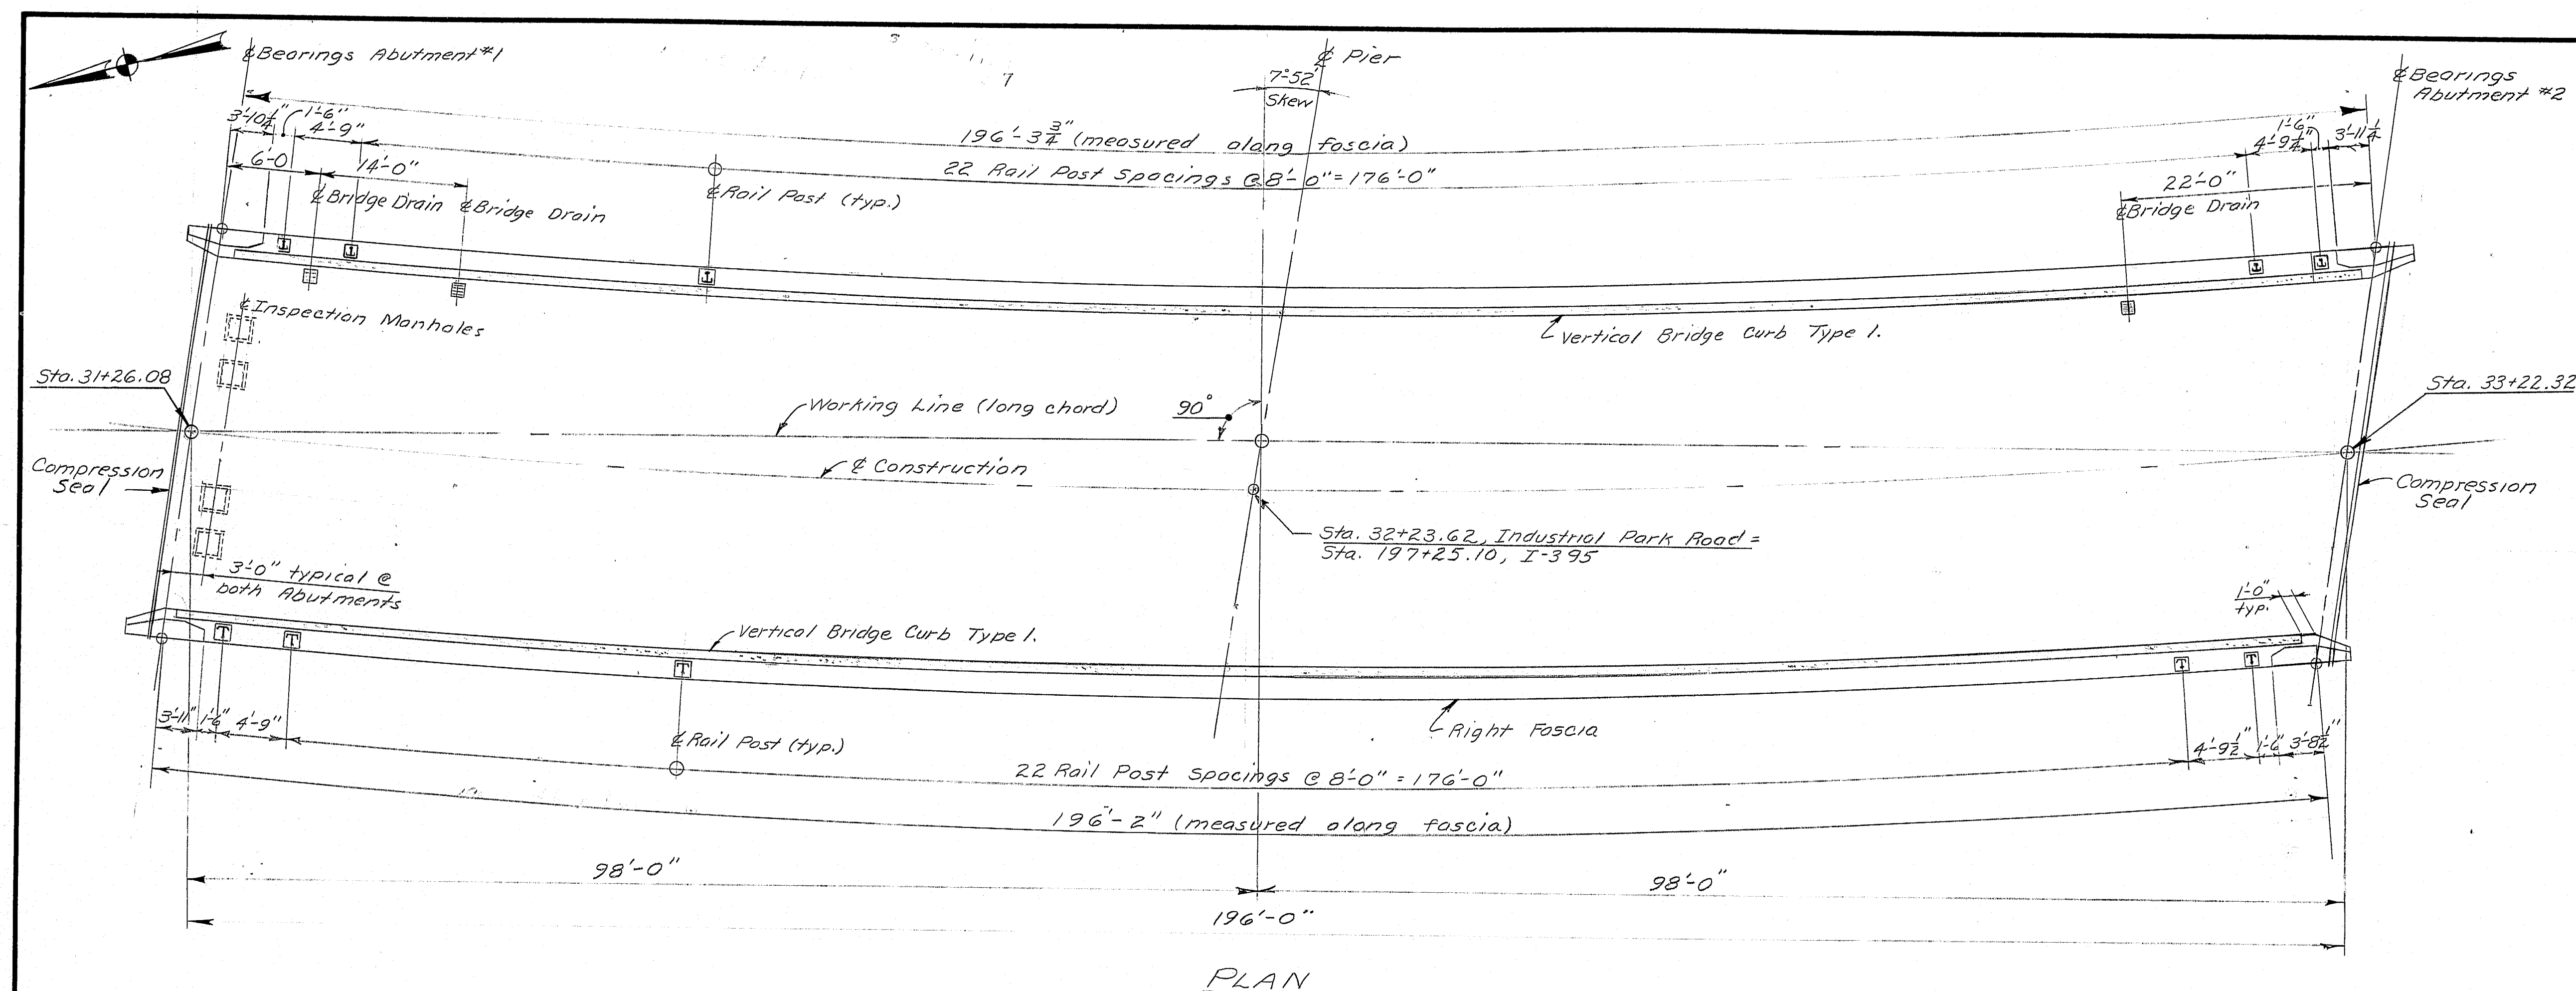 ℄ Bearings Abutment #1
℄ Pier
7°-52'
Skew
℄ Bearings
Abutment #2
3'-10 1/4"
1'-6"
4'-9"
196'-3 3/4" (measured along fascia)
1'-6"
4'-9 1/4"
3'-11 1/4
6'-0
14'-0"
22 Rail Post Spacings @ 8'-0" = 176'-0"
22'-0"
℄ Bridge Drain
℄ Bridge Drain
℄ Rail Post (typ.)
℄ Bridge Drain
℄ Inspection Manholes
Vertical Bridge Curb Type 1.
Sta. 31+26.08
Sta. 33+22.32
Working Line (long chord)
90°
Compression
Seal
℄ Construction
Compression
Seal
Sta. 32+23.62, Industrial Park Road =
Sta. 197+25.10, I-395
3'-0" typical @
both Abutments
1'-0"
typ.
Vertical Bridge Curb Type 1.
3'-11"
1'-6"
4'-9"
℄ Rail Post (typ.)
Right Fascia
4'-9 1/2"
1'-6"
3'-8 1/2"
22 Rail Post Spacings @ 8'-0" = 176'-0"
196'-2" (measured along fascia)
98'-0"
98'-0"
196'-0"
PLAN